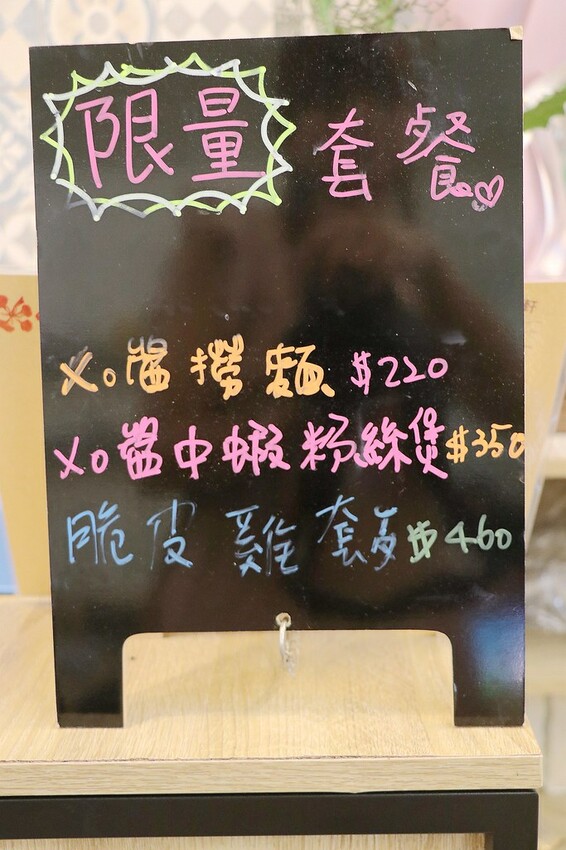 限量套餐
XO醬撈麵 $220
XO醬中蝦粉絲煲 $350
脆皮雞套餐 $460